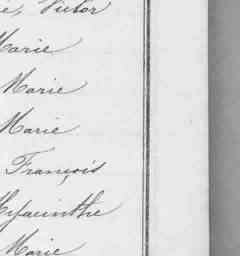 Victor
Marie
Marie
Marie
François
Hyacinthe
Marie